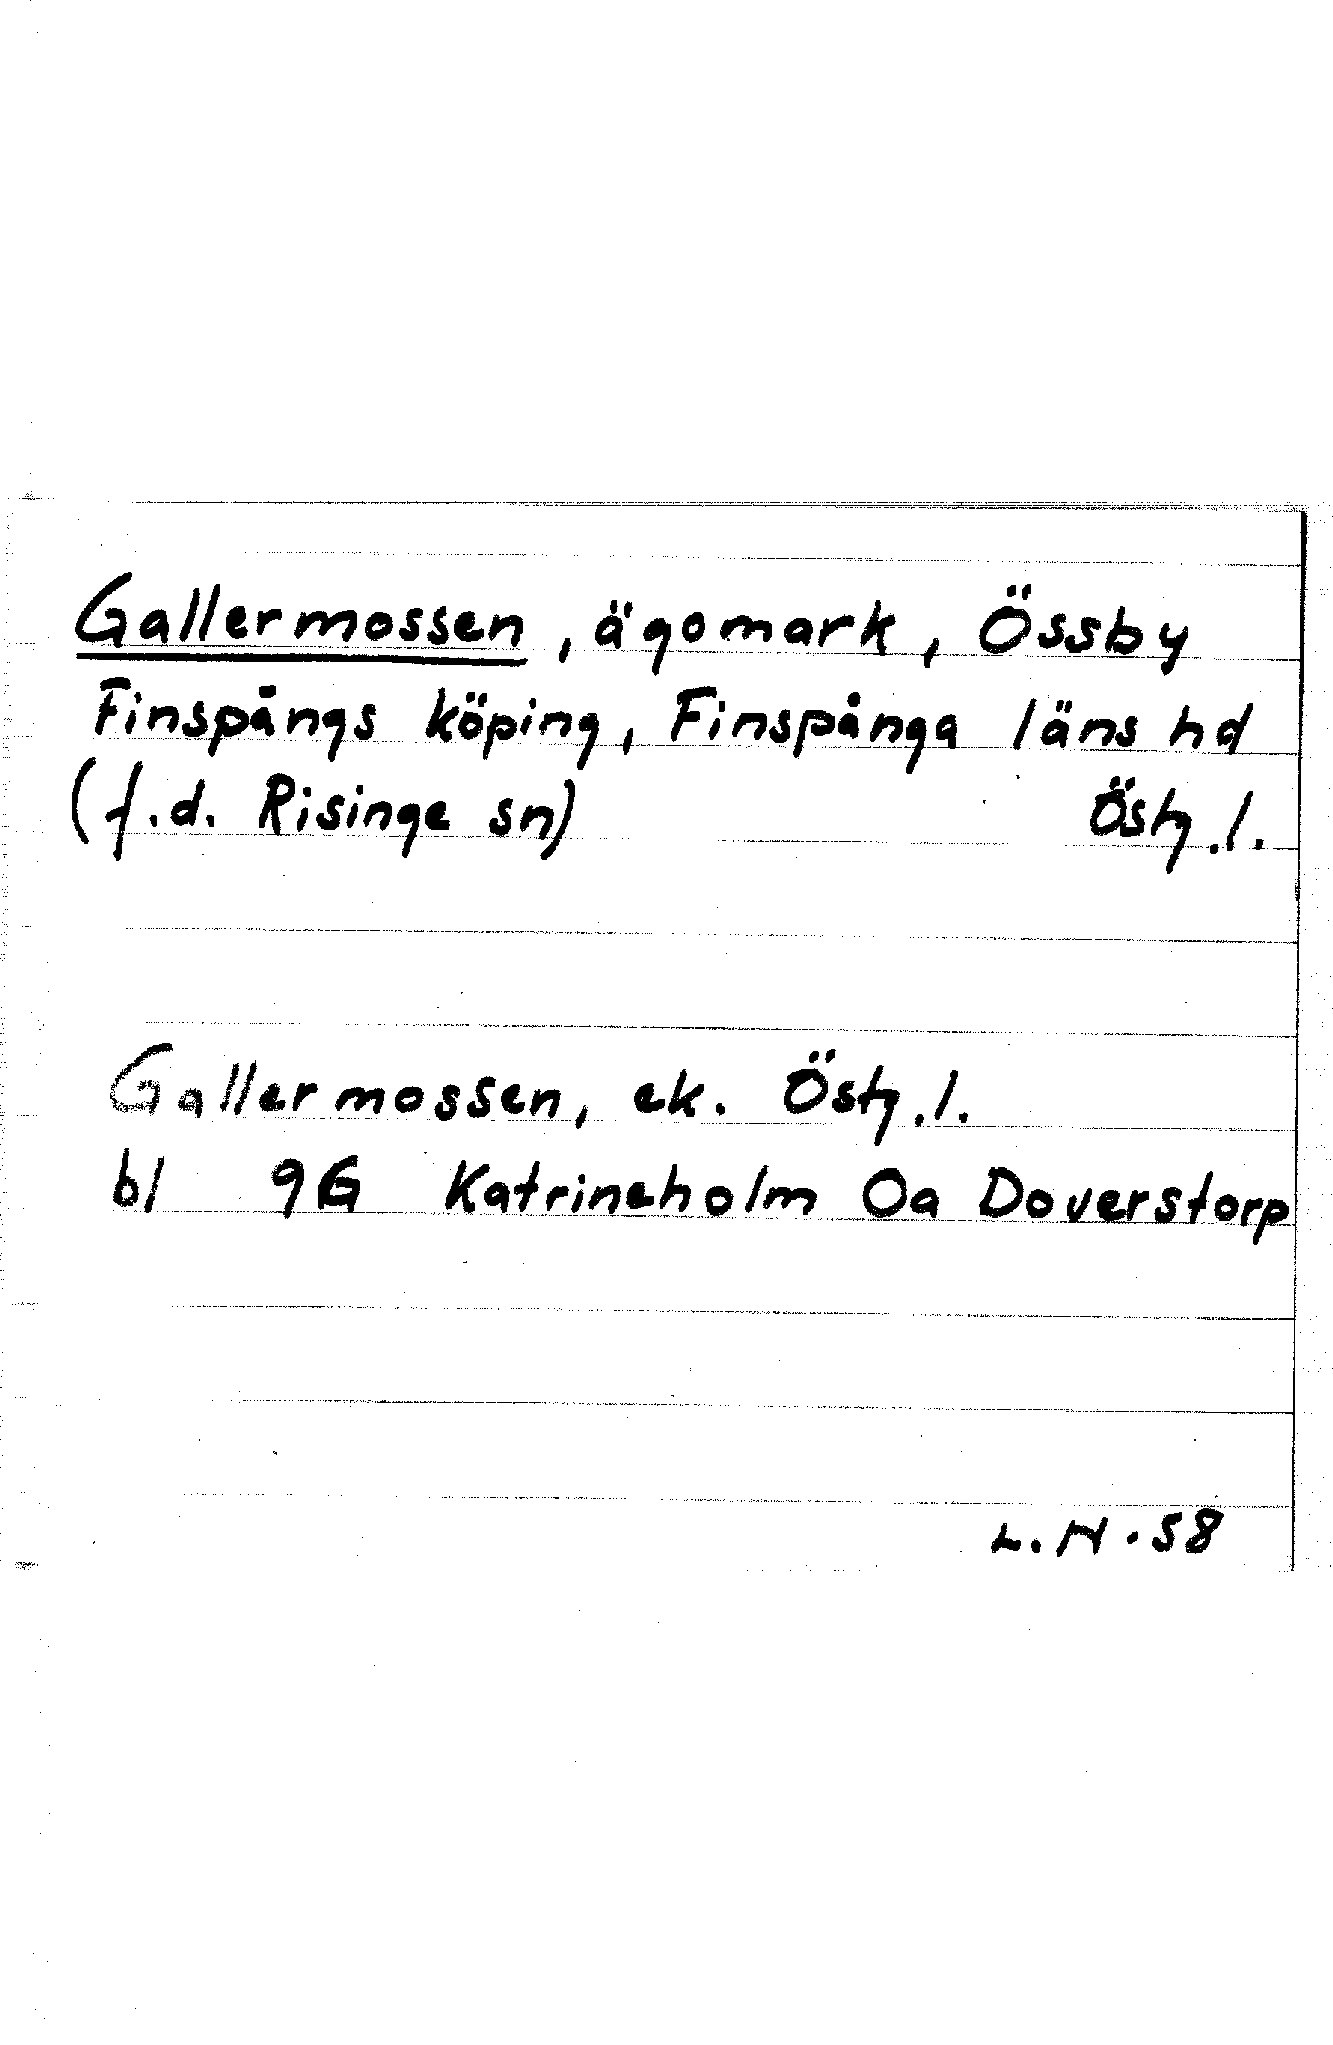 Gallermossen, ägomark, Össby
Finspångs köping, Finspånga läns hd
(f.d. Risinge sn) Östg.l.
Gallermossen, ek. Östg.l.
bl 9G Katrineholm Oa Doverstorp
L.H.58